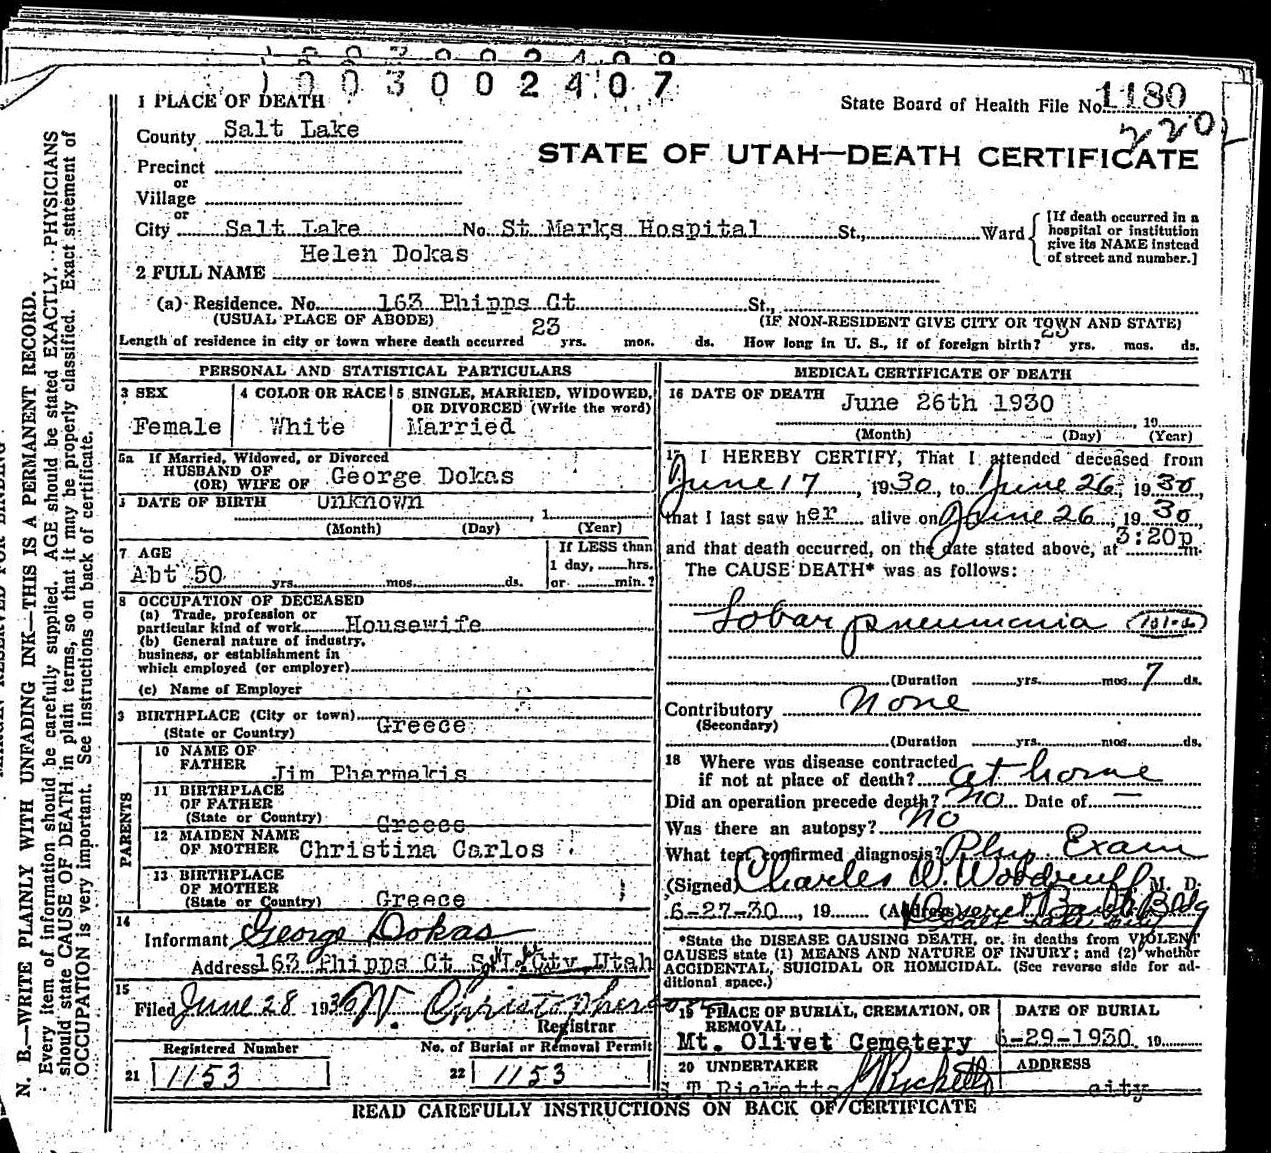 1003002407
1 PLACE OF DEATH
State Board of Health File No. 1180
2202
County Salt Lake
STATE OF UTAH—DEATH CERTIFICATE
Precinct
or
Village
or
City Salt Lake No. St Marks Hospital St., Ward
[If death occurred in a hospital or institution give its NAME instead of street and number.]
Helen Dokas
2 FULL NAME
(a) Residence. No. 163 Phipps Ct St.,
(USUAL PLACE OF ABODE) (IF NON-RESIDENT GIVE CITY OR TOWN AND STATE)
Length of residence in city or town where death occurred 23 yrs. mos. ds. How long in U. S., if of foreign birth? 23 yrs. mos. ds.
PERSONAL AND STATISTICAL PARTICULARS
3 SEX
Female
4 COLOR OR RACE
White
5 SINGLE, MARRIED, WIDOWED, OR DIVORCED (Write the word)
Married
5a If Married, Widowed, or Divorced
HUSBAND OF
(OR) WIFE OF George Dokas
DATE OF BIRTH unknown
, 1
(Month) (Day) (Year)
7 AGE
Abt 50 yrs. mos. ds.
If LESS than
1 day, hrs.
or min.?
8 OCCUPATION OF DECEASED
(a) Trade, profession or
particular kind of work Housewife
(b) General nature of industry,
business, or establishment in
which employed (or employer)
(c) Name of Employer
9 BIRTHPLACE (City or town)
(State or Country) Greece
PARENTS
10 NAME OF
FATHER Jim Pharmakis
11 BIRTHPLACE
OF FATHER
(State or Country) Greece
12 MAIDEN NAME
OF MOTHER Christina Carlos
13 BIRTHPLACE
OF MOTHER
(State or Country) Greece
14
Informant George Dokas
Address 163 Phipps Ct Salt Lake City, Utah
15
Filed June 28 1930 W. Christopherson
Registrar
Registered Number No. of Burial or Removal Permit
21 1153 22 1153
MEDICAL CERTIFICATE OF DEATH
16 DATE OF DEATH June 26th 1930
, 19
(Month) (Day) (Year)
17 I HEREBY CERTIFY, That I attended deceased from
June 17, 1930, to June 26, 1930,
that I last saw her alive on June 26, 1930
and that death occurred, on the date stated above, at 3:20p m.
The CAUSE DEATH* was as follows:
Lobar pneumonia
(Duration yrs. mos. 7 ds.
Contributory None
(Secondary)
(Duration yrs. mos. ds.
18 Where was disease contracted
if not at place of death? at home
Did an operation precede death? No Date of —
Was there an autopsy? No
What test confirmed diagnosis? Phys Exam
(Signed) Charles W. Woodruff M. D.
6-27-30, 19 (Address) Bank Bldg
Salt Lake City
*State the DISEASE CAUSING DEATH, or, in deaths from VIOLENT
CAUSES state (1) MEANS AND NATURE OF INJURY; and (2) whether
ACCIDENTAL, SUICIDAL OR HOMICIDAL. (See reverse side for ad-
ditional space.)
19 PLACE OF BURIAL, CREMATION, OR
REMOVAL
Mt. Olivet Cemetery
DATE OF BURIAL
6-29-1930 19
20 UNDERTAKER
T Ricketts
ADDRESS
city
READ CAREFULLY INSTRUCTIONS ON BACK OF CERTIFICATE
N. B.—WRITE PLAINLY WITH UNFADING INK—THIS IS A PERMANENT RECORD.
Every item of information should be carefully supplied. AGE should be stated EXACTLY. PHYSICIANS
should state CAUSE OF DEATH in plain terms, so that it may be properly classified. Exact statement of
OCCUPATION is very important. See instructions on back of certificate.